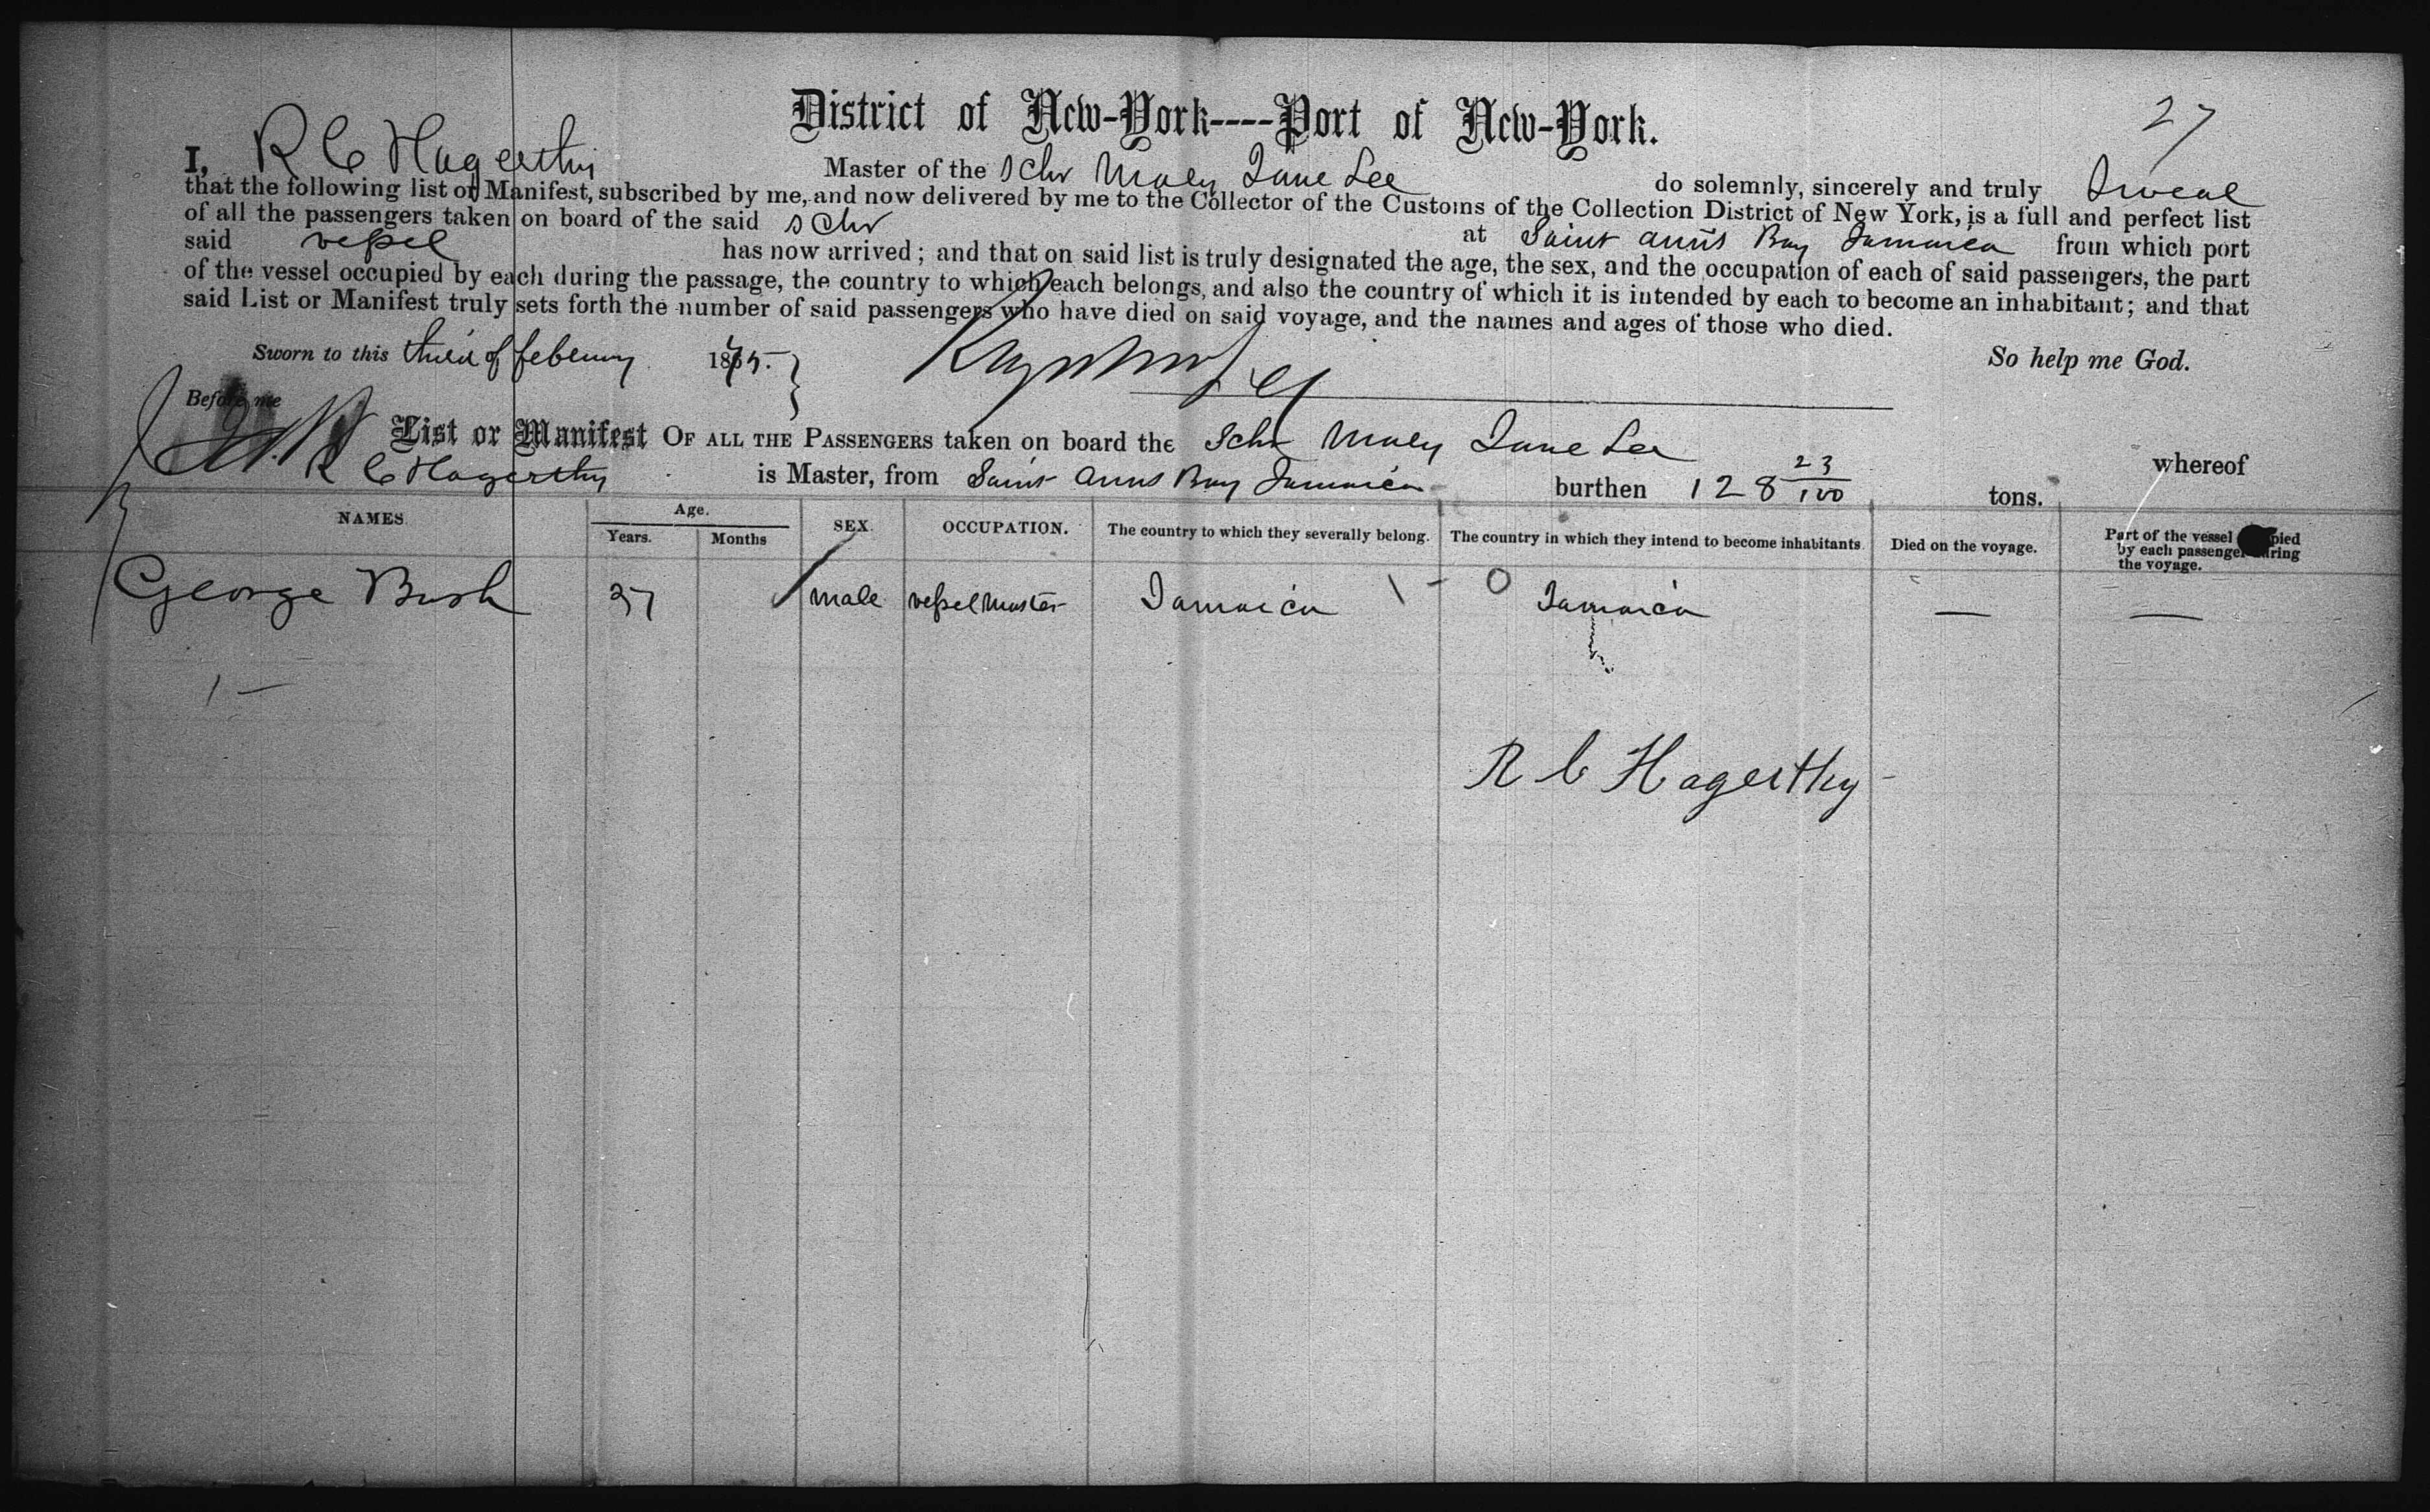 District of New-York----Port of New-York.
27
I, R C Hagerthy Master of the Schr Mary Jane Lee do solemnly, sincerely and truly Swear
that the following list or Manifest, subscribed by me, and now delivered by me to the Collector of the Customs of the Collection District of New York, is a full and perfect list
of all the passengers taken on board of the said schr at Saint Anns Bay Jamaica from which port
said vessel has now arrived; and that on said list is truly designated the age, the sex, and the occupation of each of said passengers, the part
of the vessel occupied by each during the passage, the country to which each belongs, and also the country of which it is intended by each to become an inhabitant; and that
said List or Manifest truly sets forth the number of said passengers who have died on said voyage, and the names and ages of those who died.
Sworn to this third of february 1875. So help me God.
Before me
List or Manifest OF ALL THE PASSENGERS taken on board the Schr Mary Jane Lee whereof
R C Hagerthy is Master, from Saint Anns Bay Jamaica burthen 128 23/100 tons.
NAMES. Age. Years. Months SEX. OCCUPATION. The country to which they severally belong. The country in which they intend to become inhabitants. Died on the voyage. Part of the vessel occupied by each passenger during the voyage.
George Bush 37 male vessel master Jamaica 1 - 0 Jamaica — —
1 —
R C Hagerthy